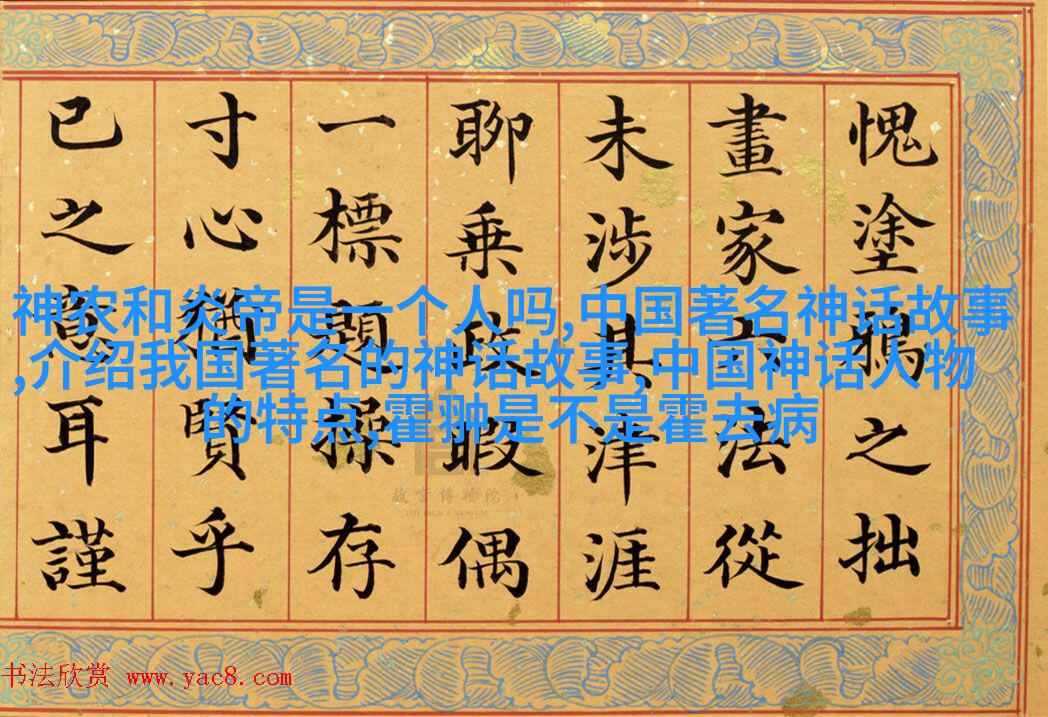 愧塗鴉之拙
畫家六法從
未涉其津涯
聊乘政暇偶
一標題操存
寸心猶賢乎
已之意耳謹
神农和炎帝是一个人吗,中国著名神话故事
,介绍我国著名的神话故事,中国神话人物
的特点,霍翀是不是霍去病
故宫博物院
THE PALACE MUSEUM
书法欣赏 www.yac8.com